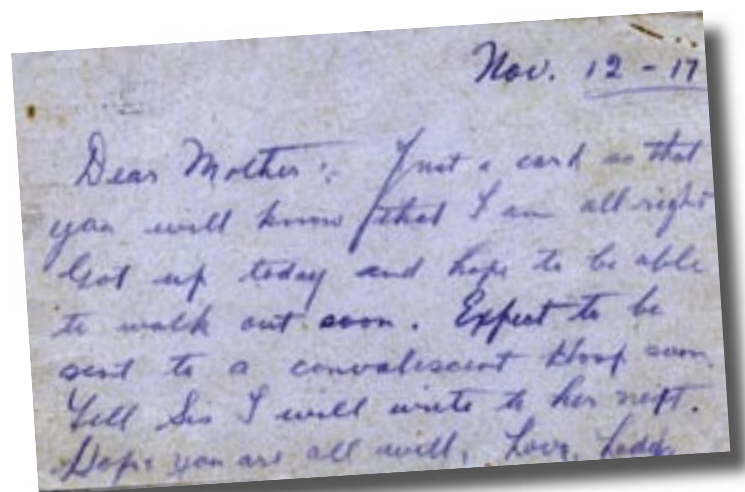 Nov. 12-17
Dear Mother:- Just a card so that
you will know that I am all right
Got up today and hope to be able
to walk out soon. Expect to be
sent to a convalescent Hosp soon.
Tell Sis I will write to her next.
Hope you are all well, Love,